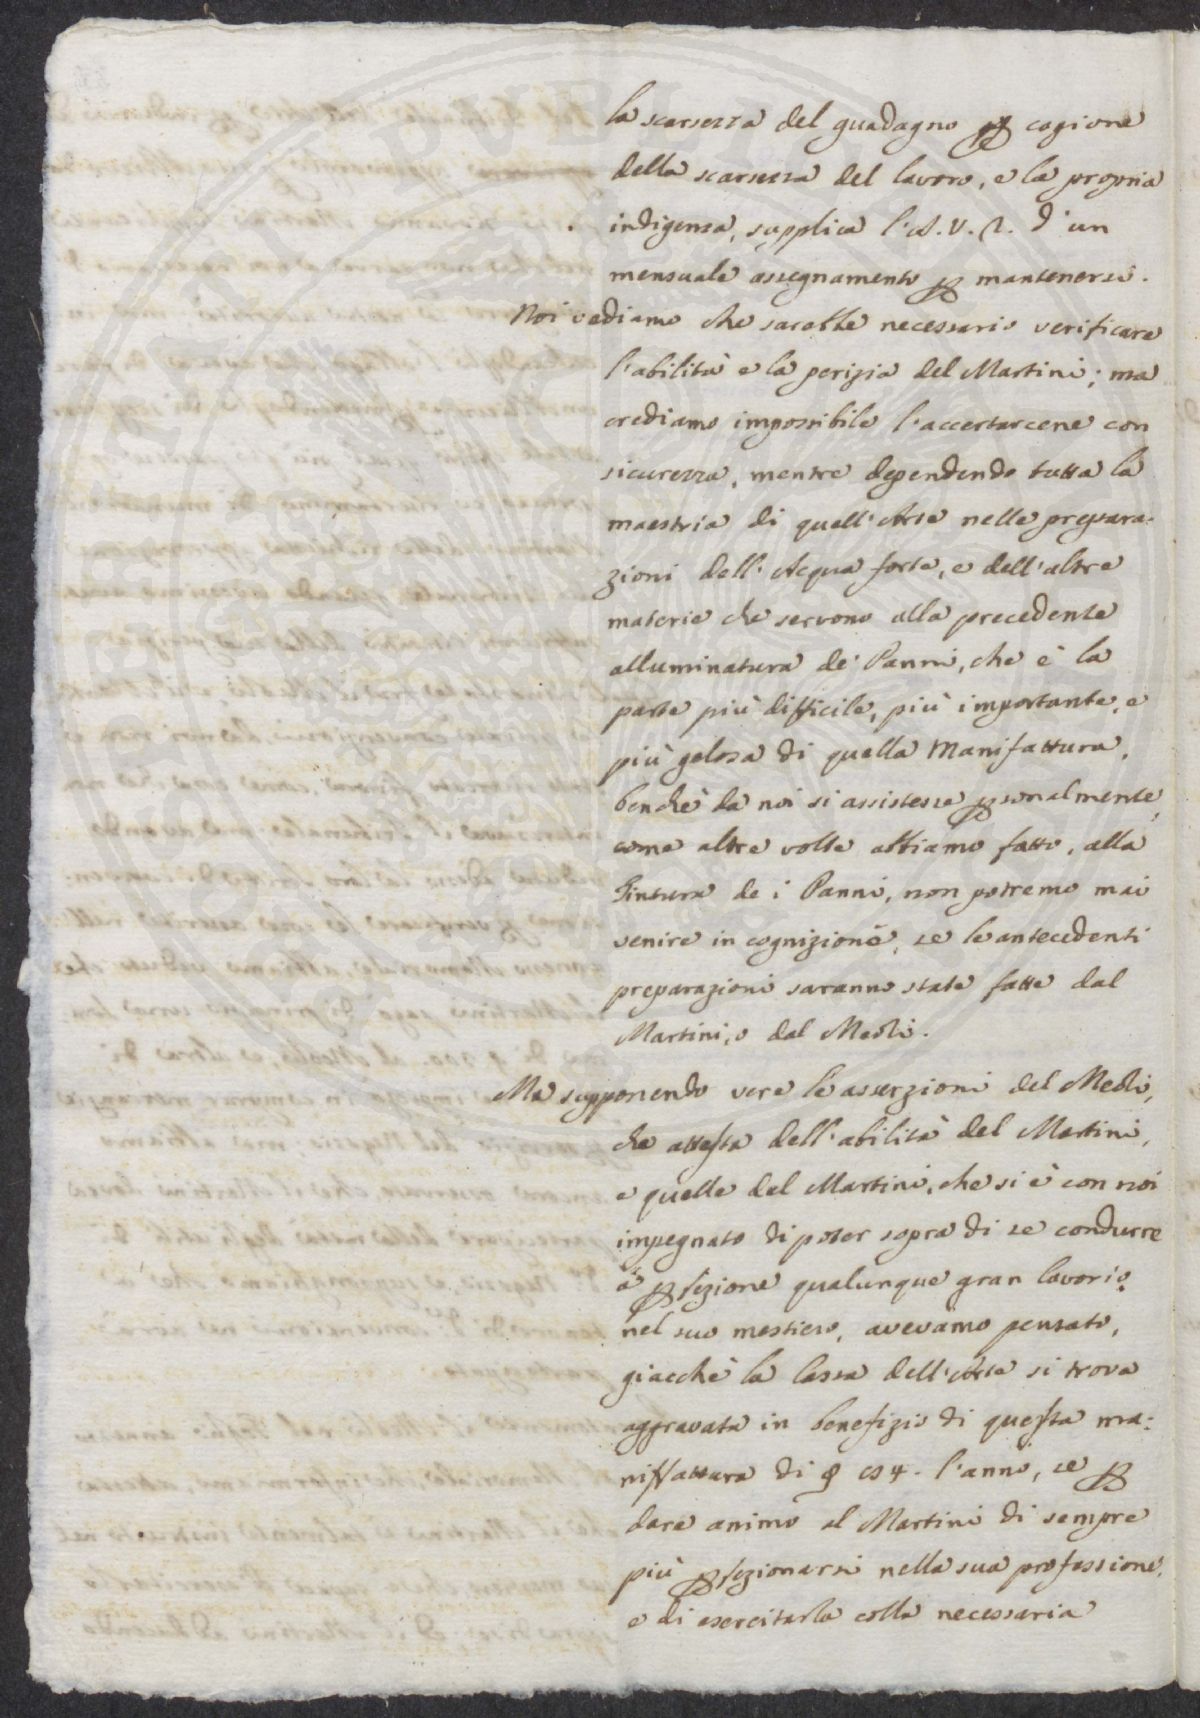 la scarsezza del guadagno ꝑ cagione
della scarsezza del lavoro, e la propria
indigenza, supplica l'A. V. R. d'un
mensuale assegnamento ꝑ mantenersi.
Noi vediamo che sarebbe necessario verificare
l'abilità e la perizia del Martini; ma
crediamo impossibile l'accertarcene con
sicurezza, mentre dependendo tutta la
maestria di quell'Arte nelle prepara-
zioni dell'Acqua forte, e dell'altre
materie che servono alla precedente
alluminatura de' Panni, che è la
parte più difficile, più importante, e
più gelosa di quella Manifattura,
benchè da noi si assistesse ꝑsonalmente,
come altre volte abbiamo fatto, alla
Tintura de i Panni, non potremo mai
venire in cognizione, se le antecedenti
preparazioni saranno state fatte dal
Martini, o dal Meoli.
Ma supponendo vere le asserzioni del Meoli,
che attesta dell'abilità del Martini,
e quelle del Martini, che si è con noi
impegnato di poter sopra di se condurre
a ꝑfezione qualunque gran lavorio
nel suo mestiero, avevamo pensato,
giacchè la Cassa dell'Arte si trova
aggravata in benefizio di questa ma-
niffattura di l'anno, se ꝑ
dare animo al Martini di sempre
più ꝑfezionarsi nella sua professione,
e di esercitarla colla necessaria